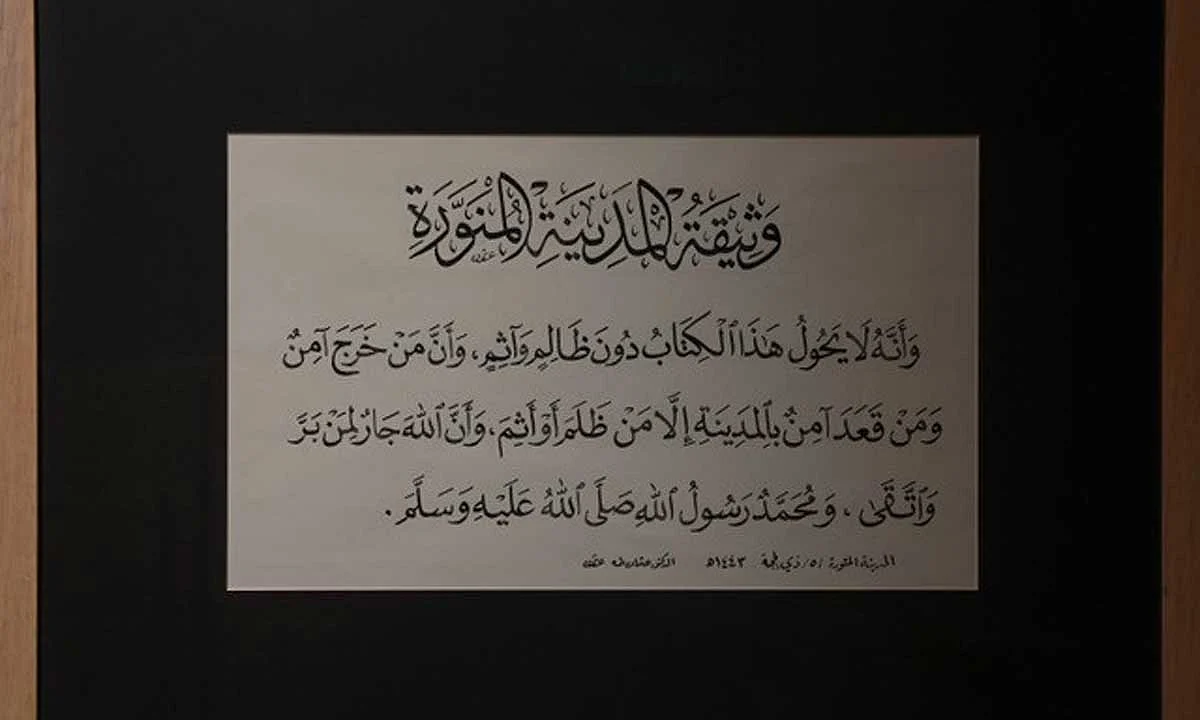 وَثِيقَةُ الْمَدِينَةِ الْمُنَوَّرَةِ
وَأَنَّهُ لَا يَحُولُ هَٰذَا ٱلْكِتَابُ دُونَ ظَالِمٍ وَآثِمٍ، وَأَنَّ مَنْ خَرَجَ آمِنٌ
وَمَنْ قَعَدَ آمِنٌ بِٱلْمَدِينَةِ إِلَّا مَنْ ظَلَمَ أَوْ أَثِمَ، وَأَنَّ ٱللهَ جَارٌ لِمَنْ بَرَّ
وَٱتَّقَىٰ، وَمُحَمَّدٌ رَسُولُ ٱللهِ صَلَّى ٱللهُ عَلَيْهِ وَسَلَّمَ.
المدينة المنورة /٥/ ذي الحجة ١٤٤٣هـ الدكتور عثمان طه